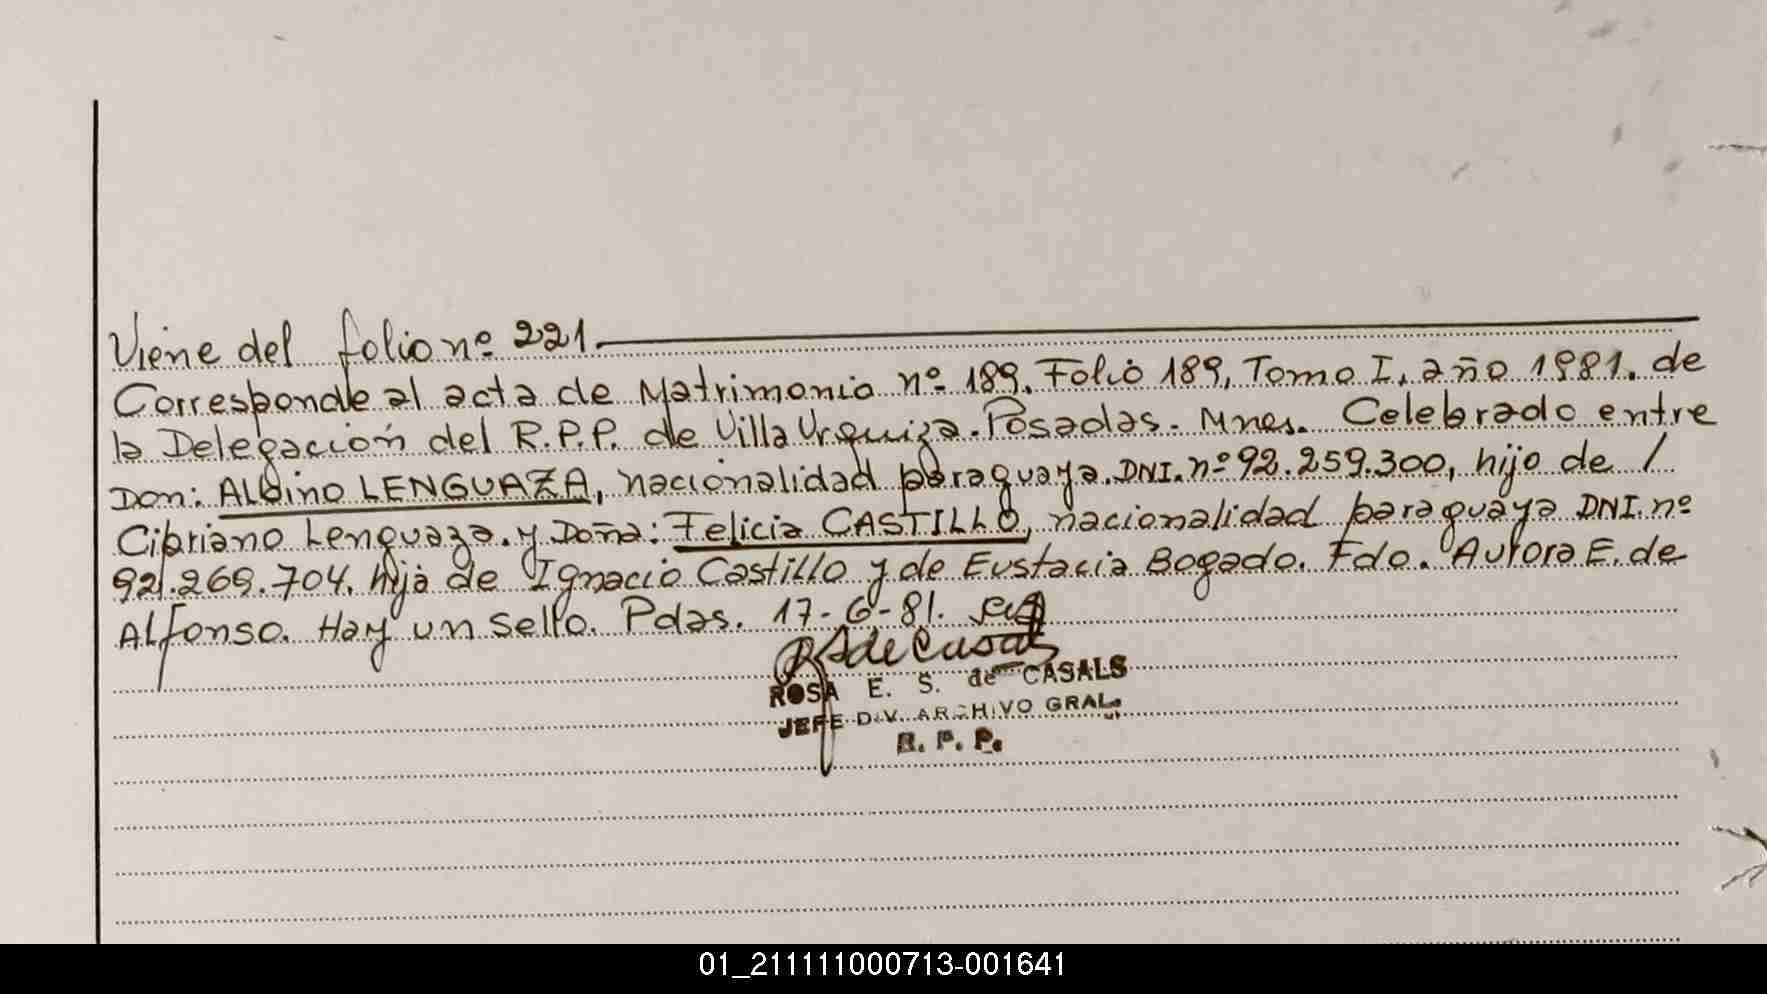 Viene del folio nº 221.
Corresponde al acta de Matrimonio nº 189. Folio 189, Tomo I, año 1981. de
la Delegación del R.P.P. de Villa Urquiza. Posadas. Mnes. Celebrado entre
Don: ALbino LENGUAZA, nacionalidad paraguaya. DNI. nº 92.259.300, hijo de /
Cipriano Lenguaza. y Doña: Felicia CASTILLO, nacionalidad paraguaya DNI. nº
92.269.704. hija de Ignacio Castillo y de Eustacia Bogado. Fdo. Aurora E. de
Alfonso. Hay un sello. Pdas. 17-6-81.
ROSA E. S. de CASALS
JEFE DIV. ARCHIVO GRAL.
R. P. P.
01_211111000713-001641